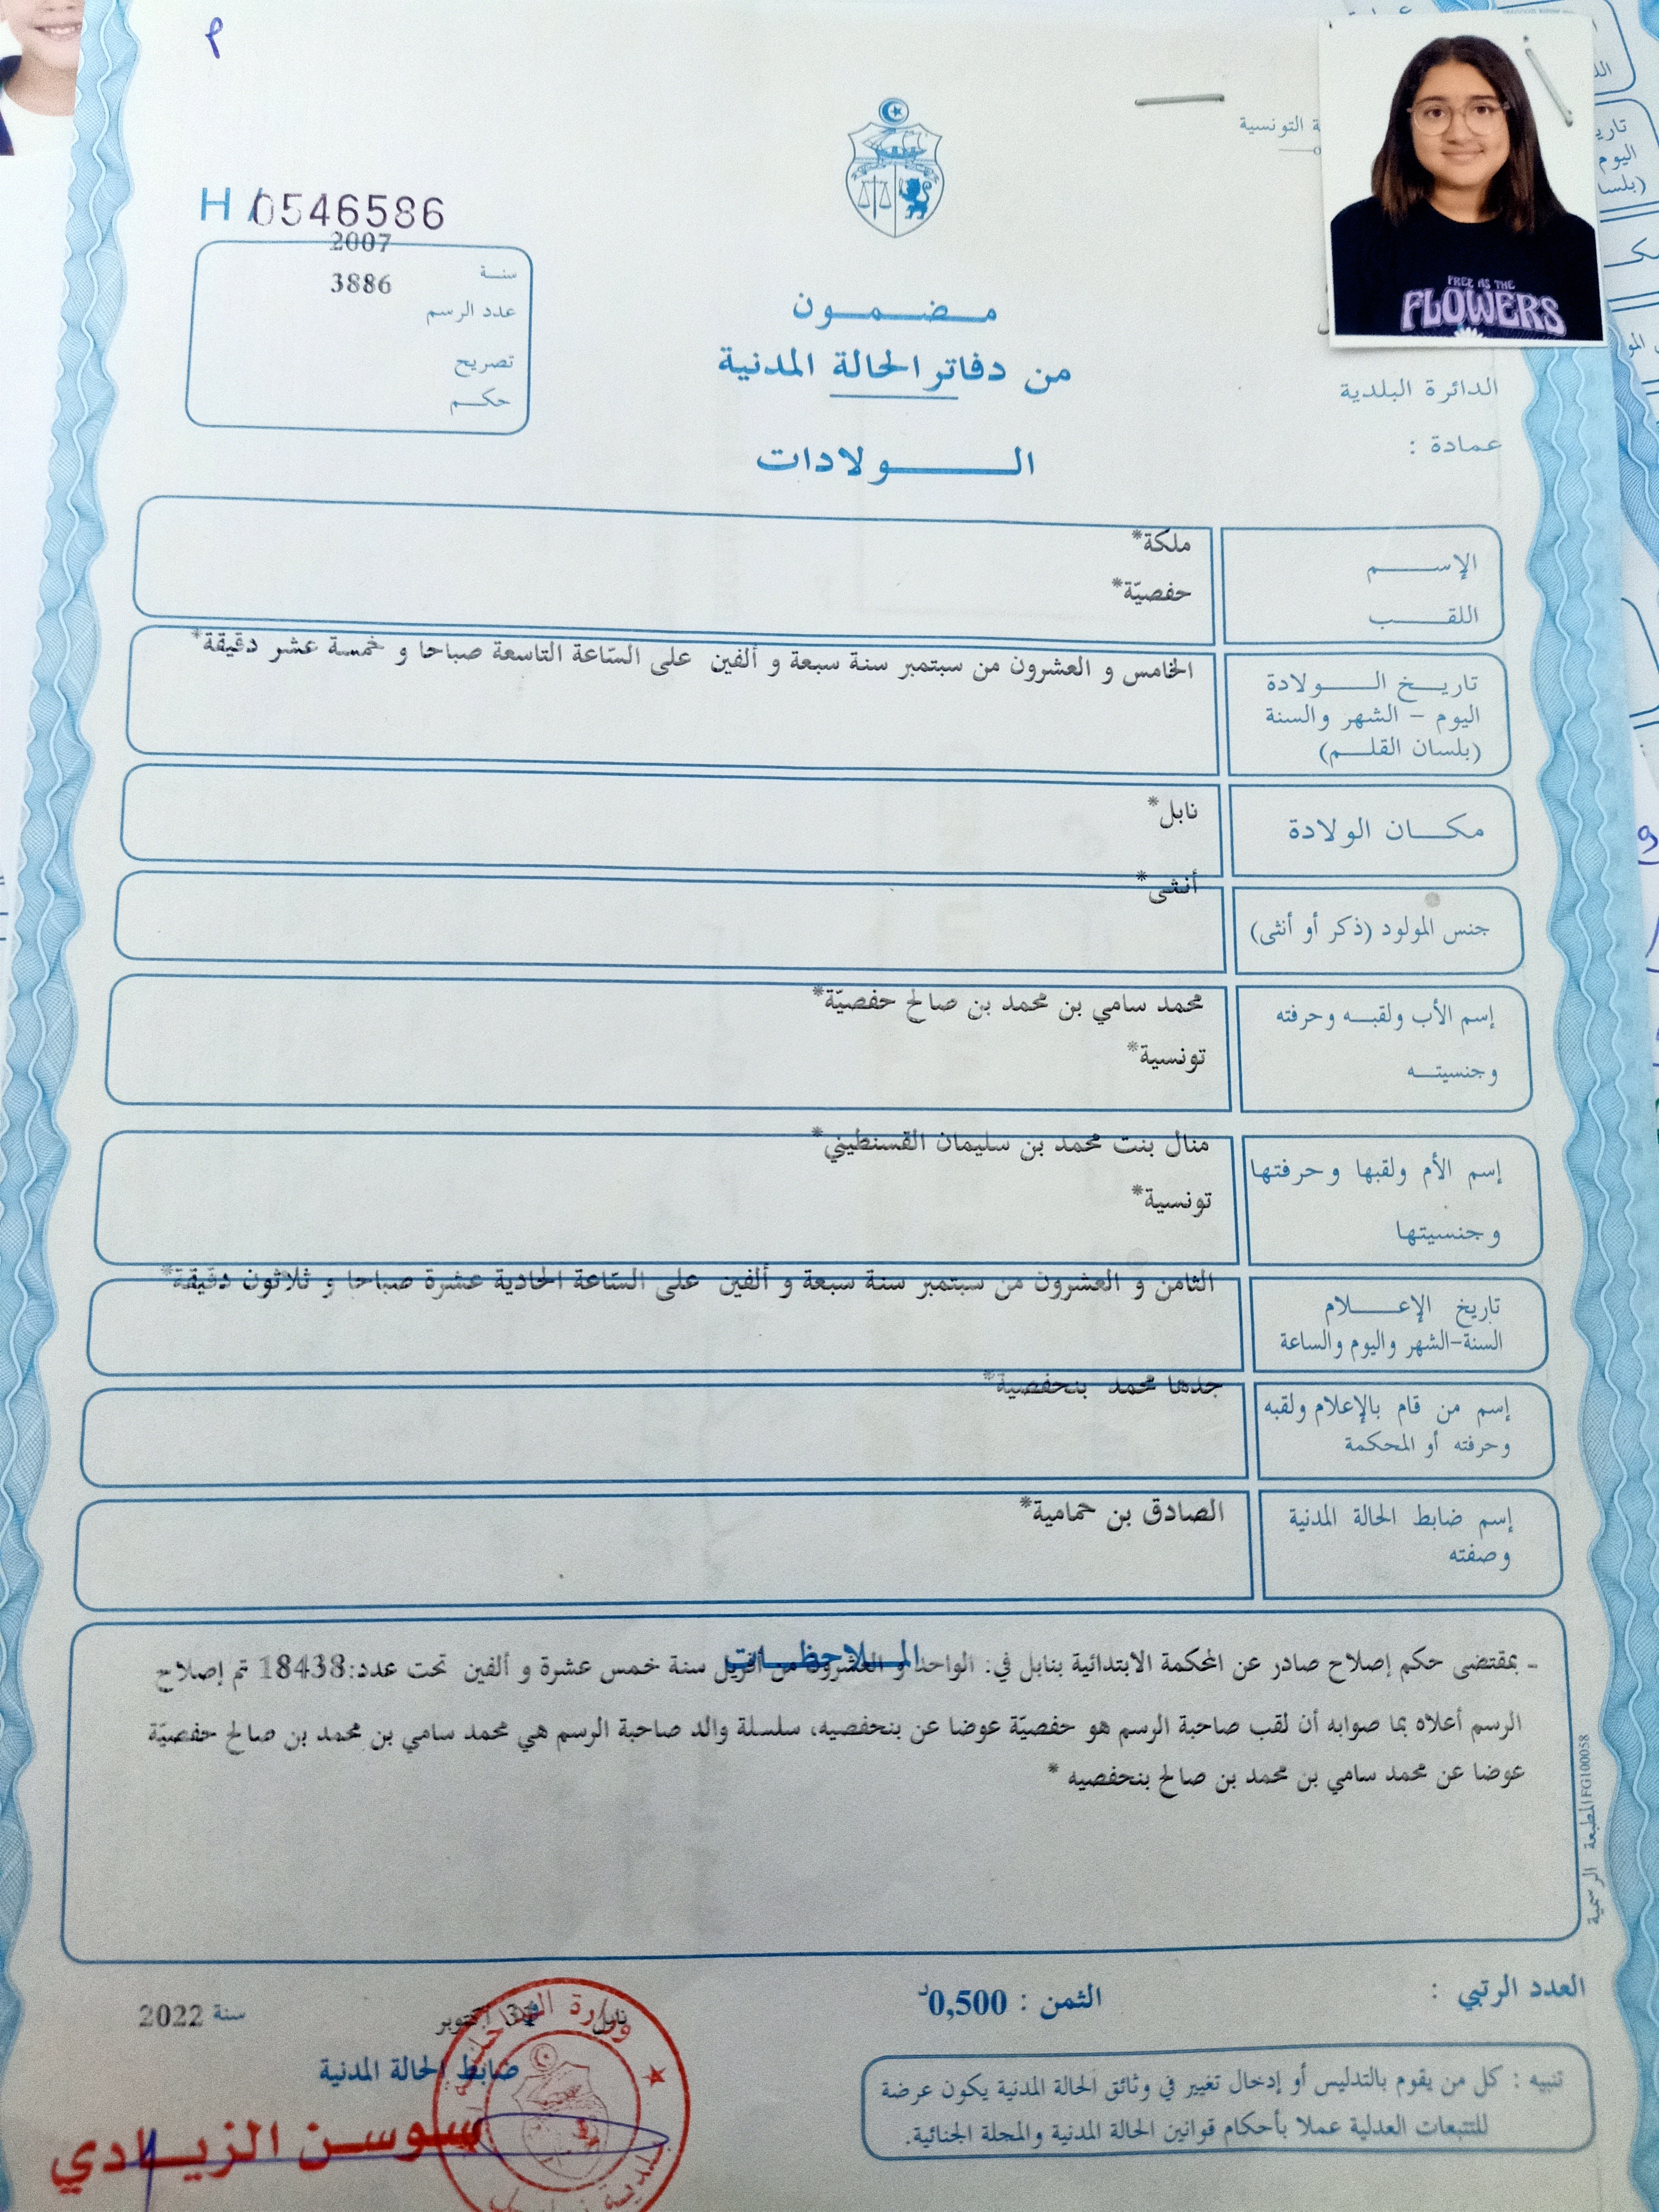 م
ـة التونسية
H/0546586
2007
سنـة
3886
عدد الرسم
تصريح
حكـم
مـضـمـون
من دفاتر الحالة المدنية
الـولادات
FREE AS THE
FLOWERS
الدائرة البلدية
عمادة :
الإسـم
ملكة*
اللقـب
حفصيّة*
تاريـخ الـولادة
اليوم – الشهر والسنة
(بلسان القلـم)
الخامس و العشرون من سبتمبر سنة سبعة و ألفين على السّاعة التاسعة صباحا و خمسة عشر دقيقة*
مكـان الولادة
نابل*
جنس المولود (ذكر أو أنثى)
أنثى*
إسم الأب ولقبـه وحرفته
وجنسيتـه
محمد سامي بن محمد بن صالح حفصيّة*
تونسية*
إسم الأم ولقبها وحرفتها
وجنسيتها
منال بنت محمد بن سليمان القسنطيني*
تونسية*
تاريخ الإعـلام
السنة-الشهر واليوم والساعة
الثامن و العشرون من سبتمبر سنة سبعة و ألفين على السّاعة الحادية عشرة صباحا و ثلاثون دقيقة*
إسم من قام بالإعلام ولقبه
وحرفته أو المحكمة
جدها محمد بنحفصية*
إسم ضابط الحالة المدنية
وصفته
الصادق بن حمامية*
المـلاحظـات
- بمقتضى حكم إصلاح صادر عن المحكمة الابتدائية بنابل في: الواحد و العشرون من أفريل سنة خمس عشرة و ألفين تحت عدد:18438 تم إصلاح
الرسم أعلاه بما صوابه أن لقب صاحبة الرسم هو حفصيّة عوضا عن بنحفصيه، سلسلة والد صاحبة الرسم هي محمد سامي بن محمد بن صالح حفصيّة
عوضا عن محمد سامي بن محمد بن صالح بنحفصيه *
المطبعة الرسمية FG100058
العدد الرتبي :
الثمن : 0,500د
نابل أكتوبر سنة 2022
ضابط الحالة المدنية
سوسن الزيـادي
وزارة الداخلية
تنبيه : كل من يقوم بالتدليس أو إدخال تغيير في وثائق الحالة المدنية يكون عرضة
للتتبعات العدلية عملا بأحكام قوانين الحالة المدنية والمجلة الجنائية.